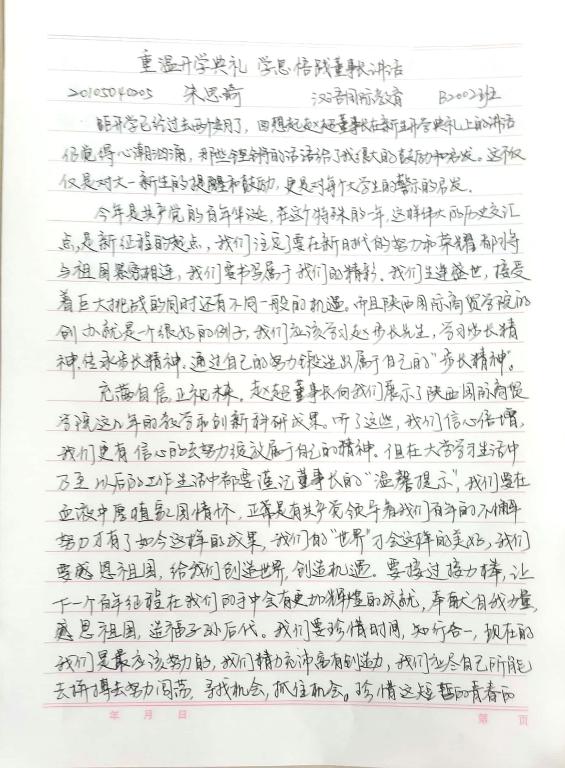 重温开学典礼 学思悟践董事长讲话
20105040205 朱思琦 汉语国际教育 B2002班
距开学已经过去两个月了，回想起赵超董事长在新生开学典礼上的讲话
仍觉得心潮汹涌，那些铿锵的话语给了我很大的鼓励和启发。这不仅
仅是对大一新生的提醒和鼓励，更是对每个大学生的警示的启发。
今年是共产党的百年华诞，在这个特殊的一年，这样伟大的历史交汇
点，是新征程的起点，我们注定了要在新时代的努力和荣耀都将
与祖国紧密相连，我们要书写属于我们的精彩。我们生逢盛世，接受
着巨大挑战的同时还有不同一般的机遇。而且陕西国际商贸学院的
创办就是一个很好的例子，我们应该学习赵步长先生，学习步长精
神，传承步长精神，通过自己的努力锻造出属于自己的“步长精神”。
充满自信，正视未来，赵超董事长向我们展示了陕西国际商贸
学院这几年的教学和创新科研成果。听了这些，我们信心倍增，
我们更有信心的去努力绽放属于自己的精神。但在大学学习生活中
乃至以后的工作生活中都要谨记董事长的“温馨提示”，我们要在
血液中厚植家国情怀，正是有共产党领导着我们百年的不懈
努力才有了如今这样的成果，我们的“世界”才会这样的美好，我们
要感恩祖国，给我们创造世界，创造机遇。要接过接力棒，让
下一个百年征程在我们的手中会有更加辉煌的成就，奉献自我力量，
感恩祖国，造福子孙后代。我们要珍惜时间，知行合一，现在的
我们是最应该努力的，我们精力充沛富有创造力，我们应尽自己所能
去拼搏去努力闯荡，寻找机会，抓住机会。珍惜这短暂的青春的
年 月 日 第 页